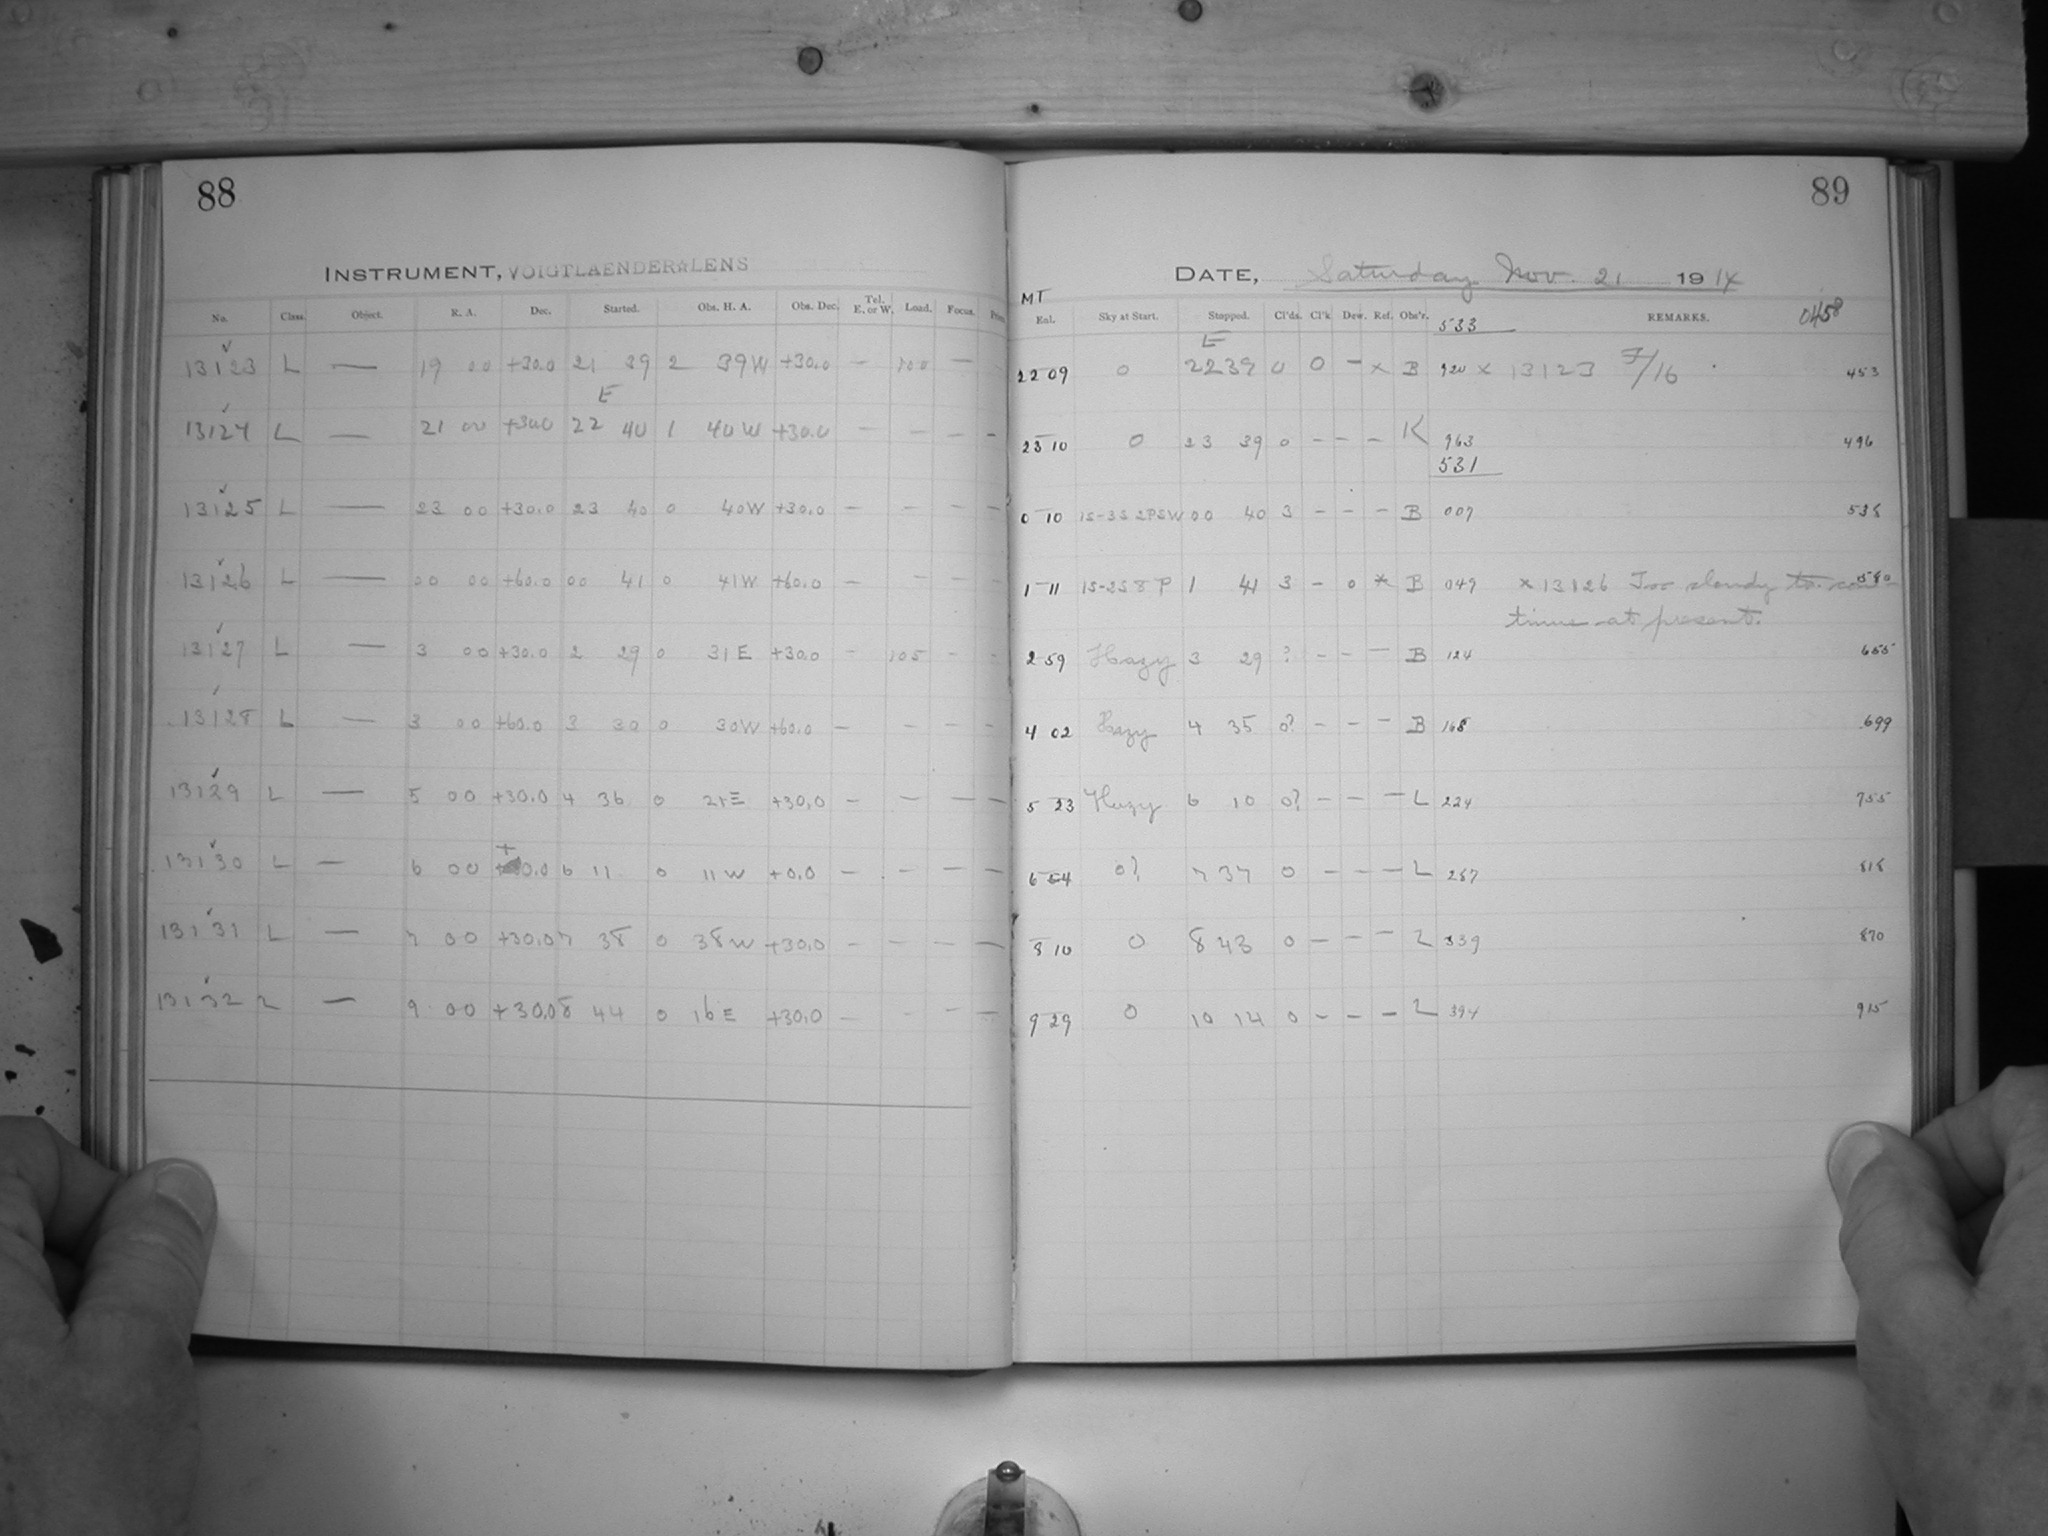 88
INSTRUMENT, VOIGTLAENDER LENS
No. Class. Object. R. A. Dec. Started. Obs. H. A. Obs. Dec. Tel. E. or W. Load. Focus.
13123 L — 19 00 +30.0 21 39 2 39W +30.0 — 100 —
E
13124 L — 21 00 +30.0 22 40 1 40W +30.0 — — — —
13125 L — 23 00 +30.0 23 40 0 40W +30.0 — — — —
13126 L — 00 00 +60.0 00 41 0 41W +60.0 — — — —
13127 L — 3 00 +30.0 2 29 0 31E +30.0 — 105 — —
13128 L — 3 00 +60.0 3 30 0 30W +60.0 — — — —
13129 L — 5 00 +30.0 4 36 0 24E +30.0 — — — —
13130 L — 6 00 +0.0 6 11 0 11W +0.0 — — — —
13131 L — 7 00 +30.0 7 38 0 38W +30.0 — — — —
13132 L — 9 00 +30.0 8 44 0 16E +30.0 — — — —
89
DATE, Saturday Nov. 21 1914
MT
Eql. Sky at Start. Stopped. Cl'ds. Cl'k Dew. Ref. Obs'r. REMARKS. 0458
533
E
22 09 0 22 39 0 0 — x B 920 x 13123 F/16 453
23 10 0 23 39 0 — — — K 963 496
531
0 10 1S-3S 2PSW 00 40 3 — — — B 007 538
1 11 1S-2S 8 P 1 41 3 — 0 x B 049 x 13126 Too cloudy to con- 580
tinue at present.
2 59 Hazy 3 29 ? — — — B 124 655
4 02 Hazy 4 35 0? — — — B 168 699
5 23 Hazy 6 10 0? — — — L 224 755
6 54 0? 7 37 0 — — — L 287 818
8 10 0 8 43 0 — — — L 339 870
9 29 0 10 14 0 — — — L 394 915